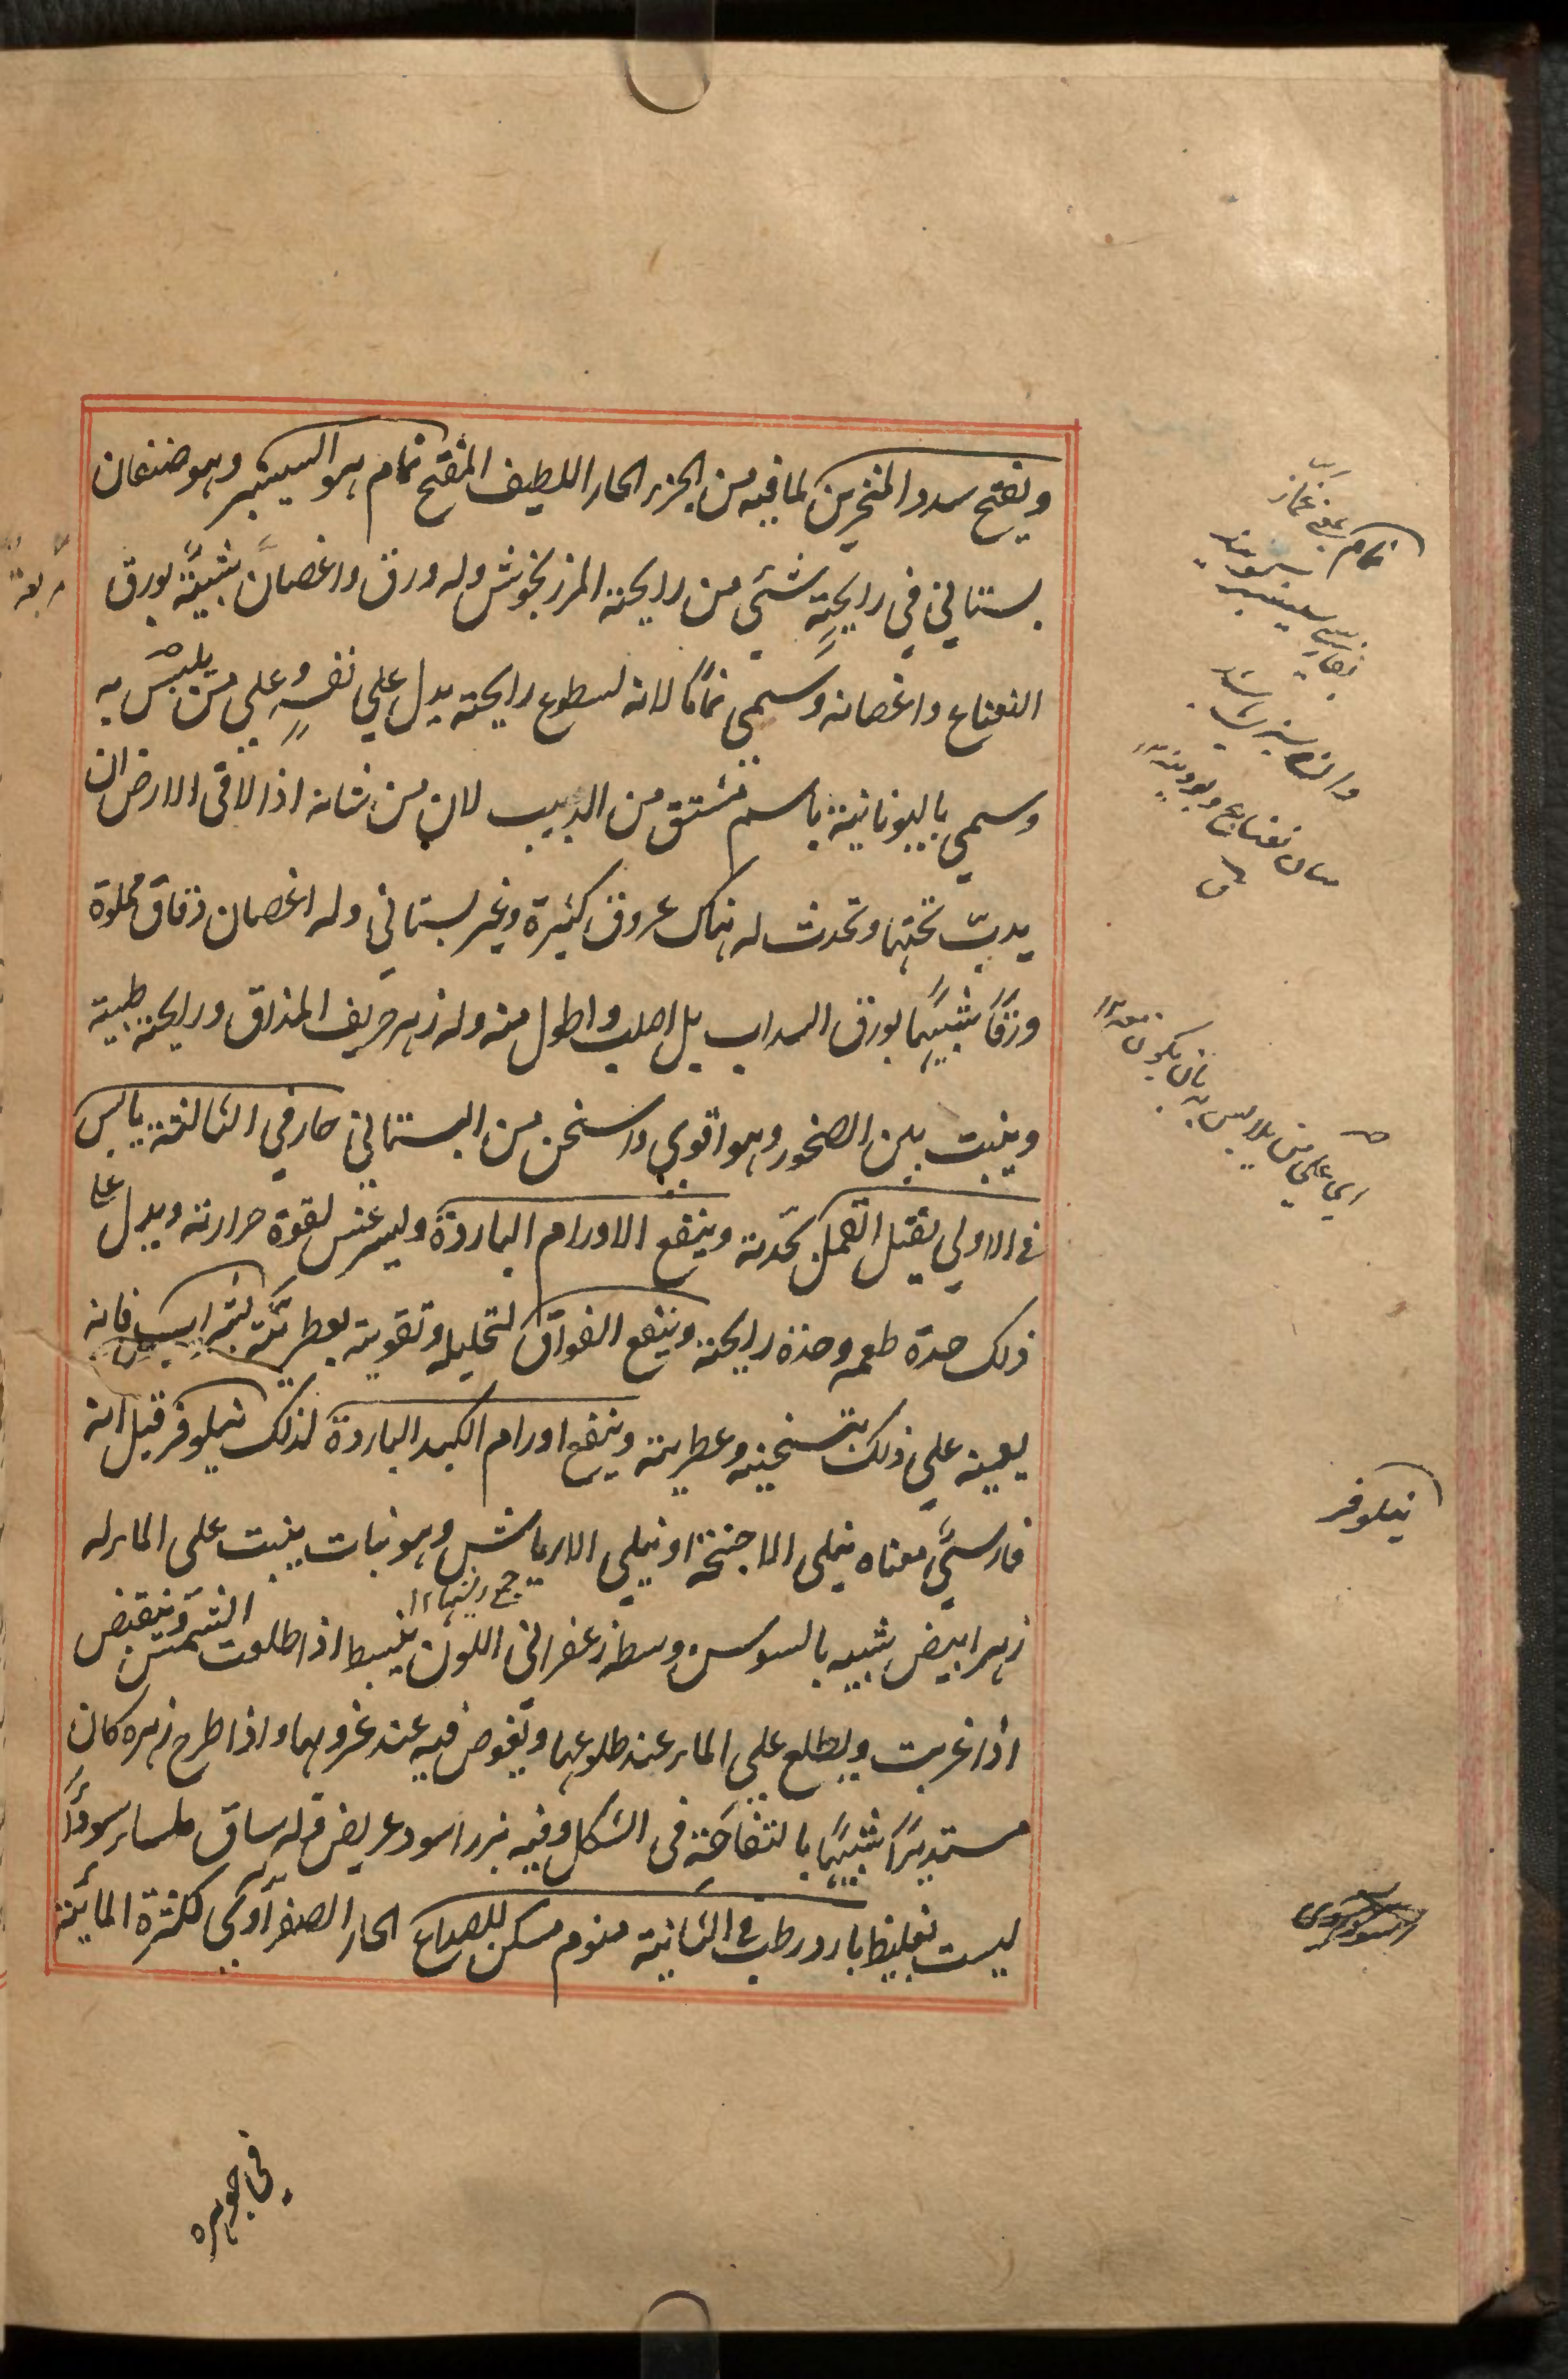 ويفتح سدد المنخرين لما فيه من الجزء الحار اللطيف المفتح نمام هو السيسنبر وهو صنفان
بستاني في رايحته شئي من رايحة المرزنجوش وله ورق واغصان شبيهة بورق
النعناع واغصانه وسمي نماما لانه لسطوع رايحته يدل على نفسه وعلى من يلبس به
وسمي باليونانية باسم مشتق من الدبيب لان من شانه اذا لاقى الارض ان
يدب تحتها وتحدث له هناك عروق كثيرة وغير بستاني وله اغصان دقاق مملوة
ورقا شبيها بورق السداب بل اصلب واطول منه وله زهر حريف المذاق ورايحته طيبة
وينبت بين الصخور وهو اقوي واسخن من البستاني حار في الثالثة يابس
في الاولي يقتل القمل بحدته وينفع الاورام الباردة وليثرغس لقوة حرارته ويدل على
ذلك حدة طعمه وحدة رايحته وينفع الفواق لتحليله وتقويته بعطريته بشراب فانه
يعينه علي ذلك بتسخينه وعطريته وينفع اورام الكبد الباردة لذلك نيلوفر قيل انه
فارسي معناه نيلي الاجنحة او نيلي الارياش وهو نبات ينبت على الماء له
جمع ريش ١٢
زهر ابيض شبيه بالسوسن وسطه زعفراني اللون ينبسط اذا طلعت الشمس وينقبض
اذا غربت ويطلع علي الماء عند طلوعها ويغوص فيه عند غروبها واذا طرح زهره كان
مستديرا شبيها بالتفاحة في الشكل وفيه بزر اسود عريض وله ساق ملساء سوداء
ليست بغليظة بارد رطب في الثانية منوم مسكن للصداع الحار الصفراوي لكثرة المائية
في جوهره
نمام
اي على من يلابس به بان يكون معه ١٢
نيلوفر